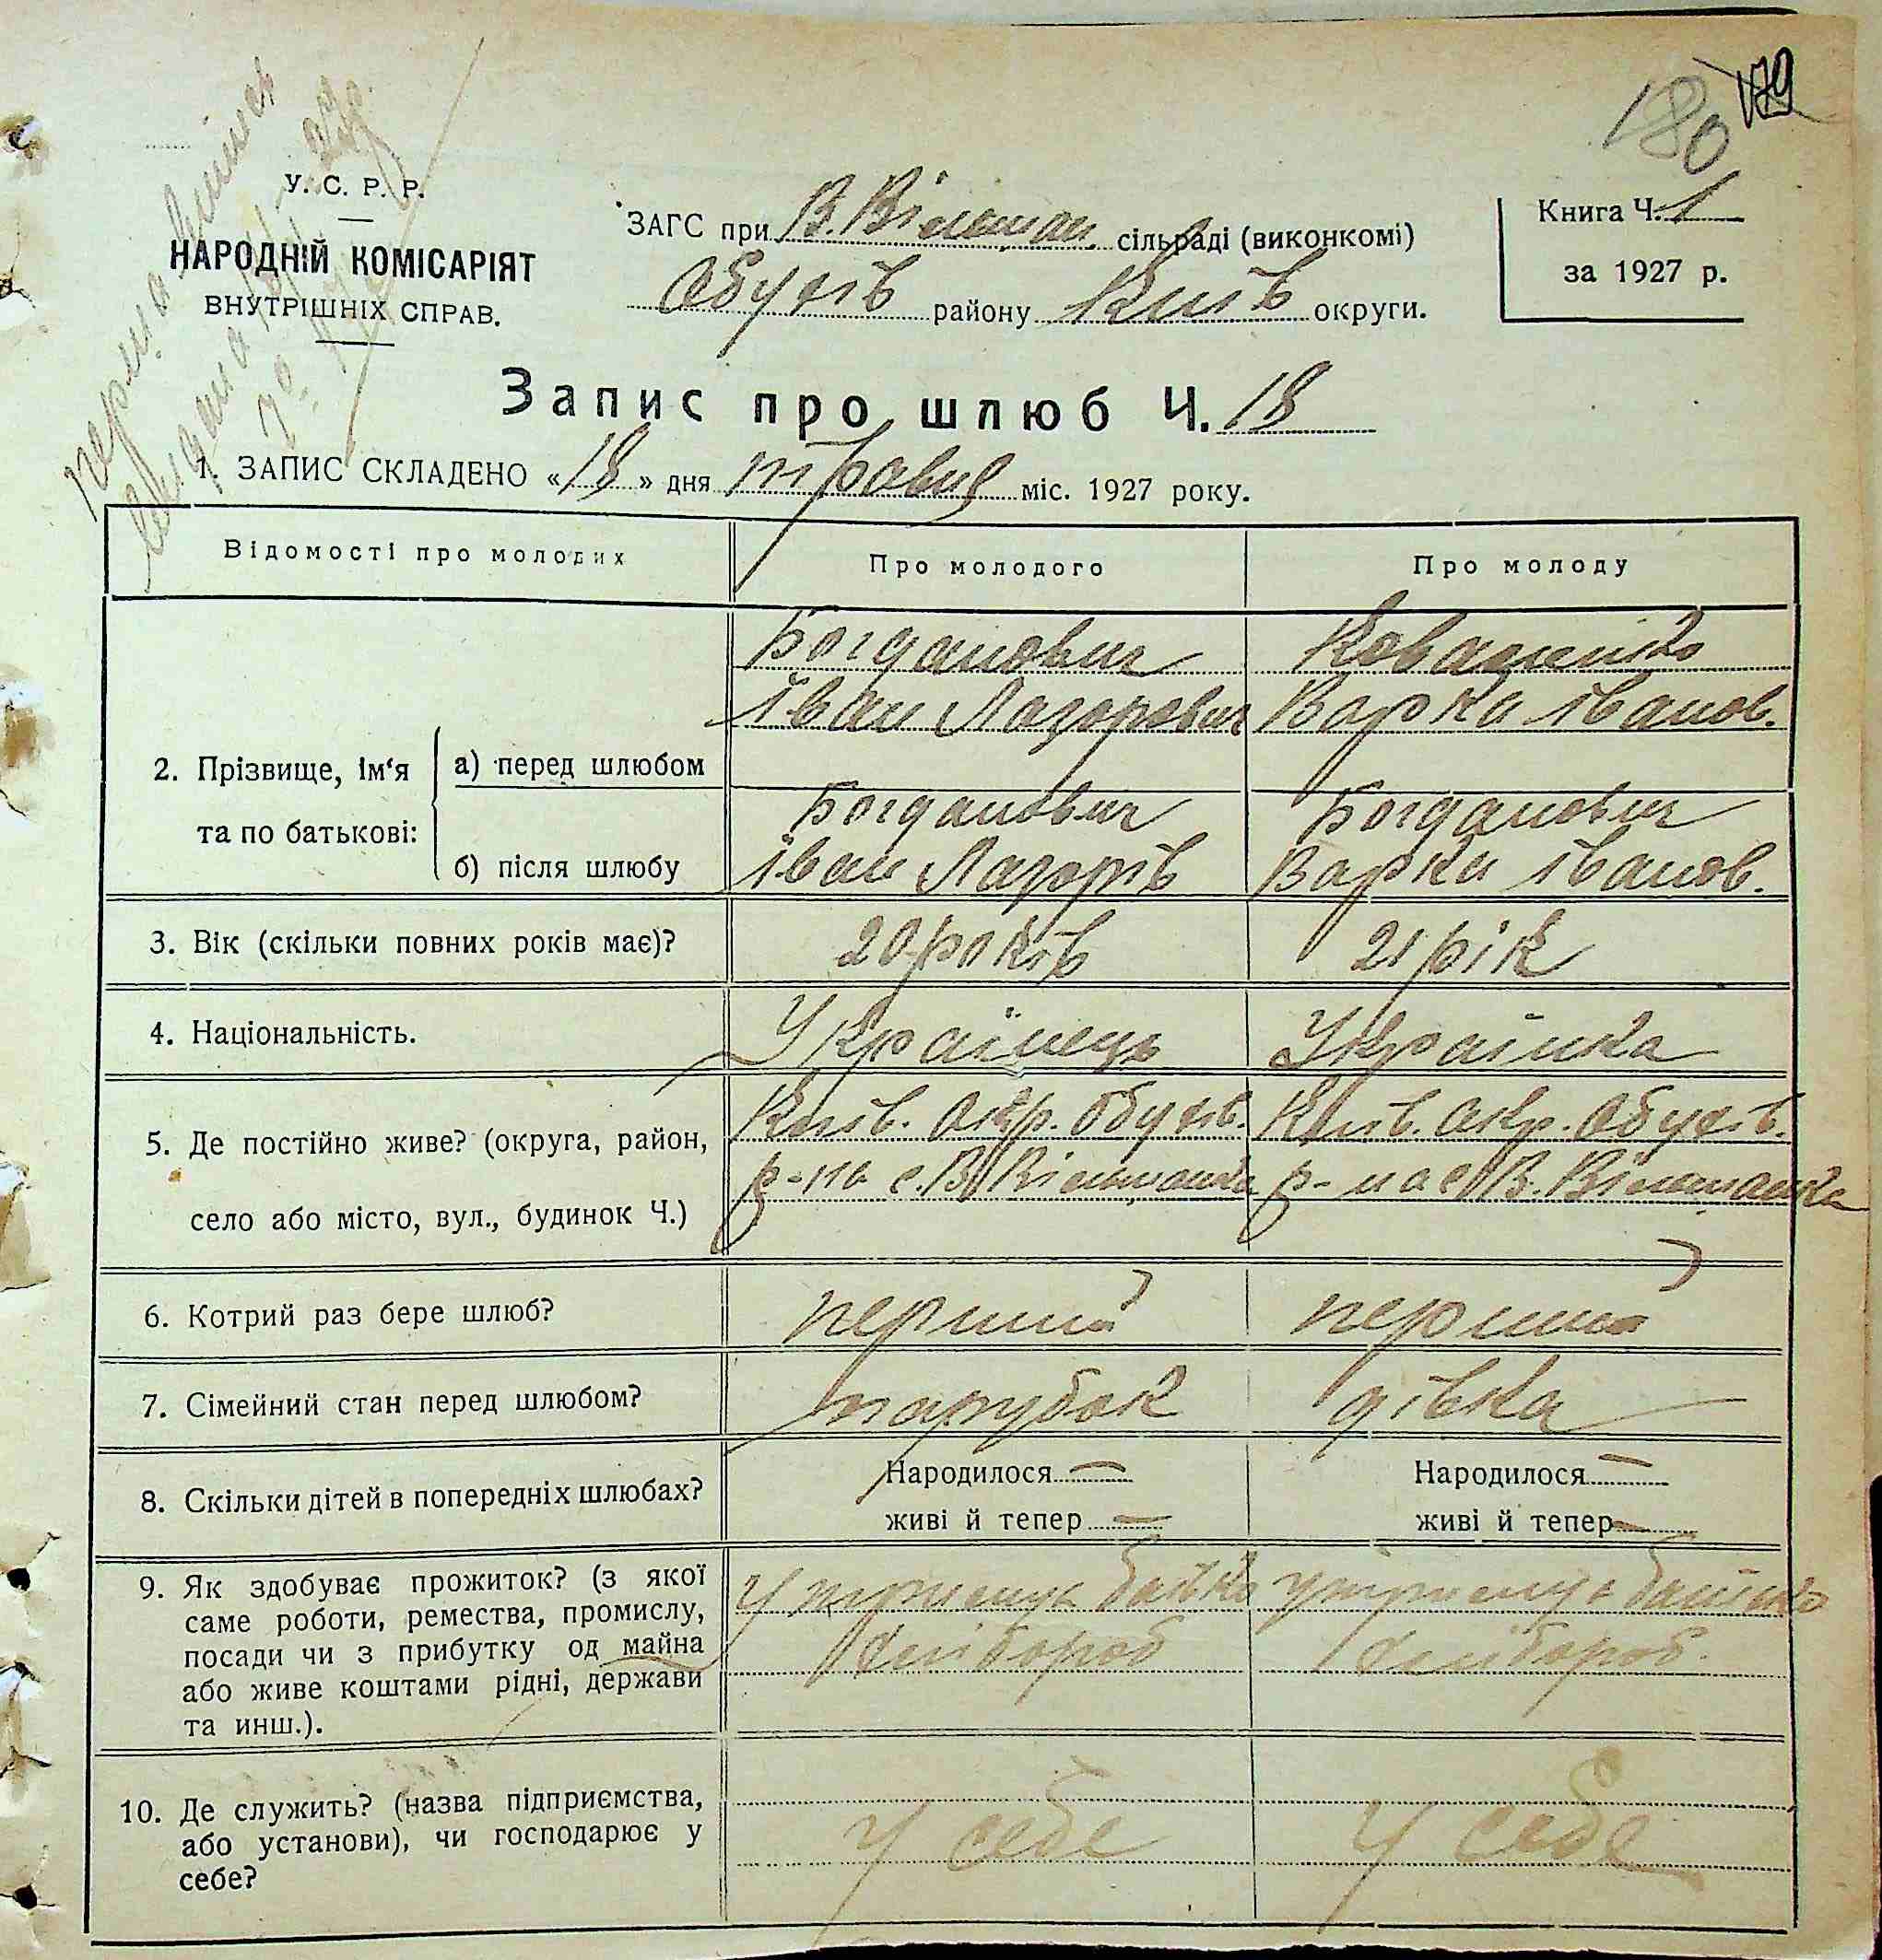 180 179
У. С. Р. Р.
НАРОДНІЙ КОМІСАРІЯТ
ВНУТРІШНІХ СПРАВ.
ЗАГС при В. Вільшан. сільраді (виконкомі)
Обухів району Київ округи.
Книга Ч. 1
за 1927 р.
перша
Запис про шлюб Ч. 18
1. ЗАПИС СКЛАДЕНО «18» дня травня міс. 1927 року.
Відомості про молодих Про молодого Про молоду
Богданович Коваленко
Іван Лазорович Варка Іванов.
2. Прізвище, ім'я та по батькові:
а) перед шлюбом
Богданович Богданович
б) після шлюбу Іван Лазорів Варка Іванов.
3. Вік (скільки повних років має)? 20 років 21 рік
4. Національність. Українець Українка
5. Де постійно живе? (округа, район, Київ. Окр. Обухів. Київ. Окр. Обухів.
село або місто, вул., будинок Ч.) р-на с. В. Вільшанка р-на с. В. Вільшанка
6. Котрий раз бере шлюб? перший перший
7. Сімейний стан перед шлюбом? парубок дівка
8. Скільки дітей в попередніх шлюбах? Народилося — Народилося —
живі й тепер — живі й тепер —
9. Як здобуває прожиток? (з якої
саме роботи, ремества, промислу,
посади чи з прибутку од майна
або живе коштами рідні, держави
та инш.).
утримує батько утримує батько
хлібороб хлібороб.
10. Де служить? (назва підприємства,
або установи), чи господарює у
себе?
У себе У себе